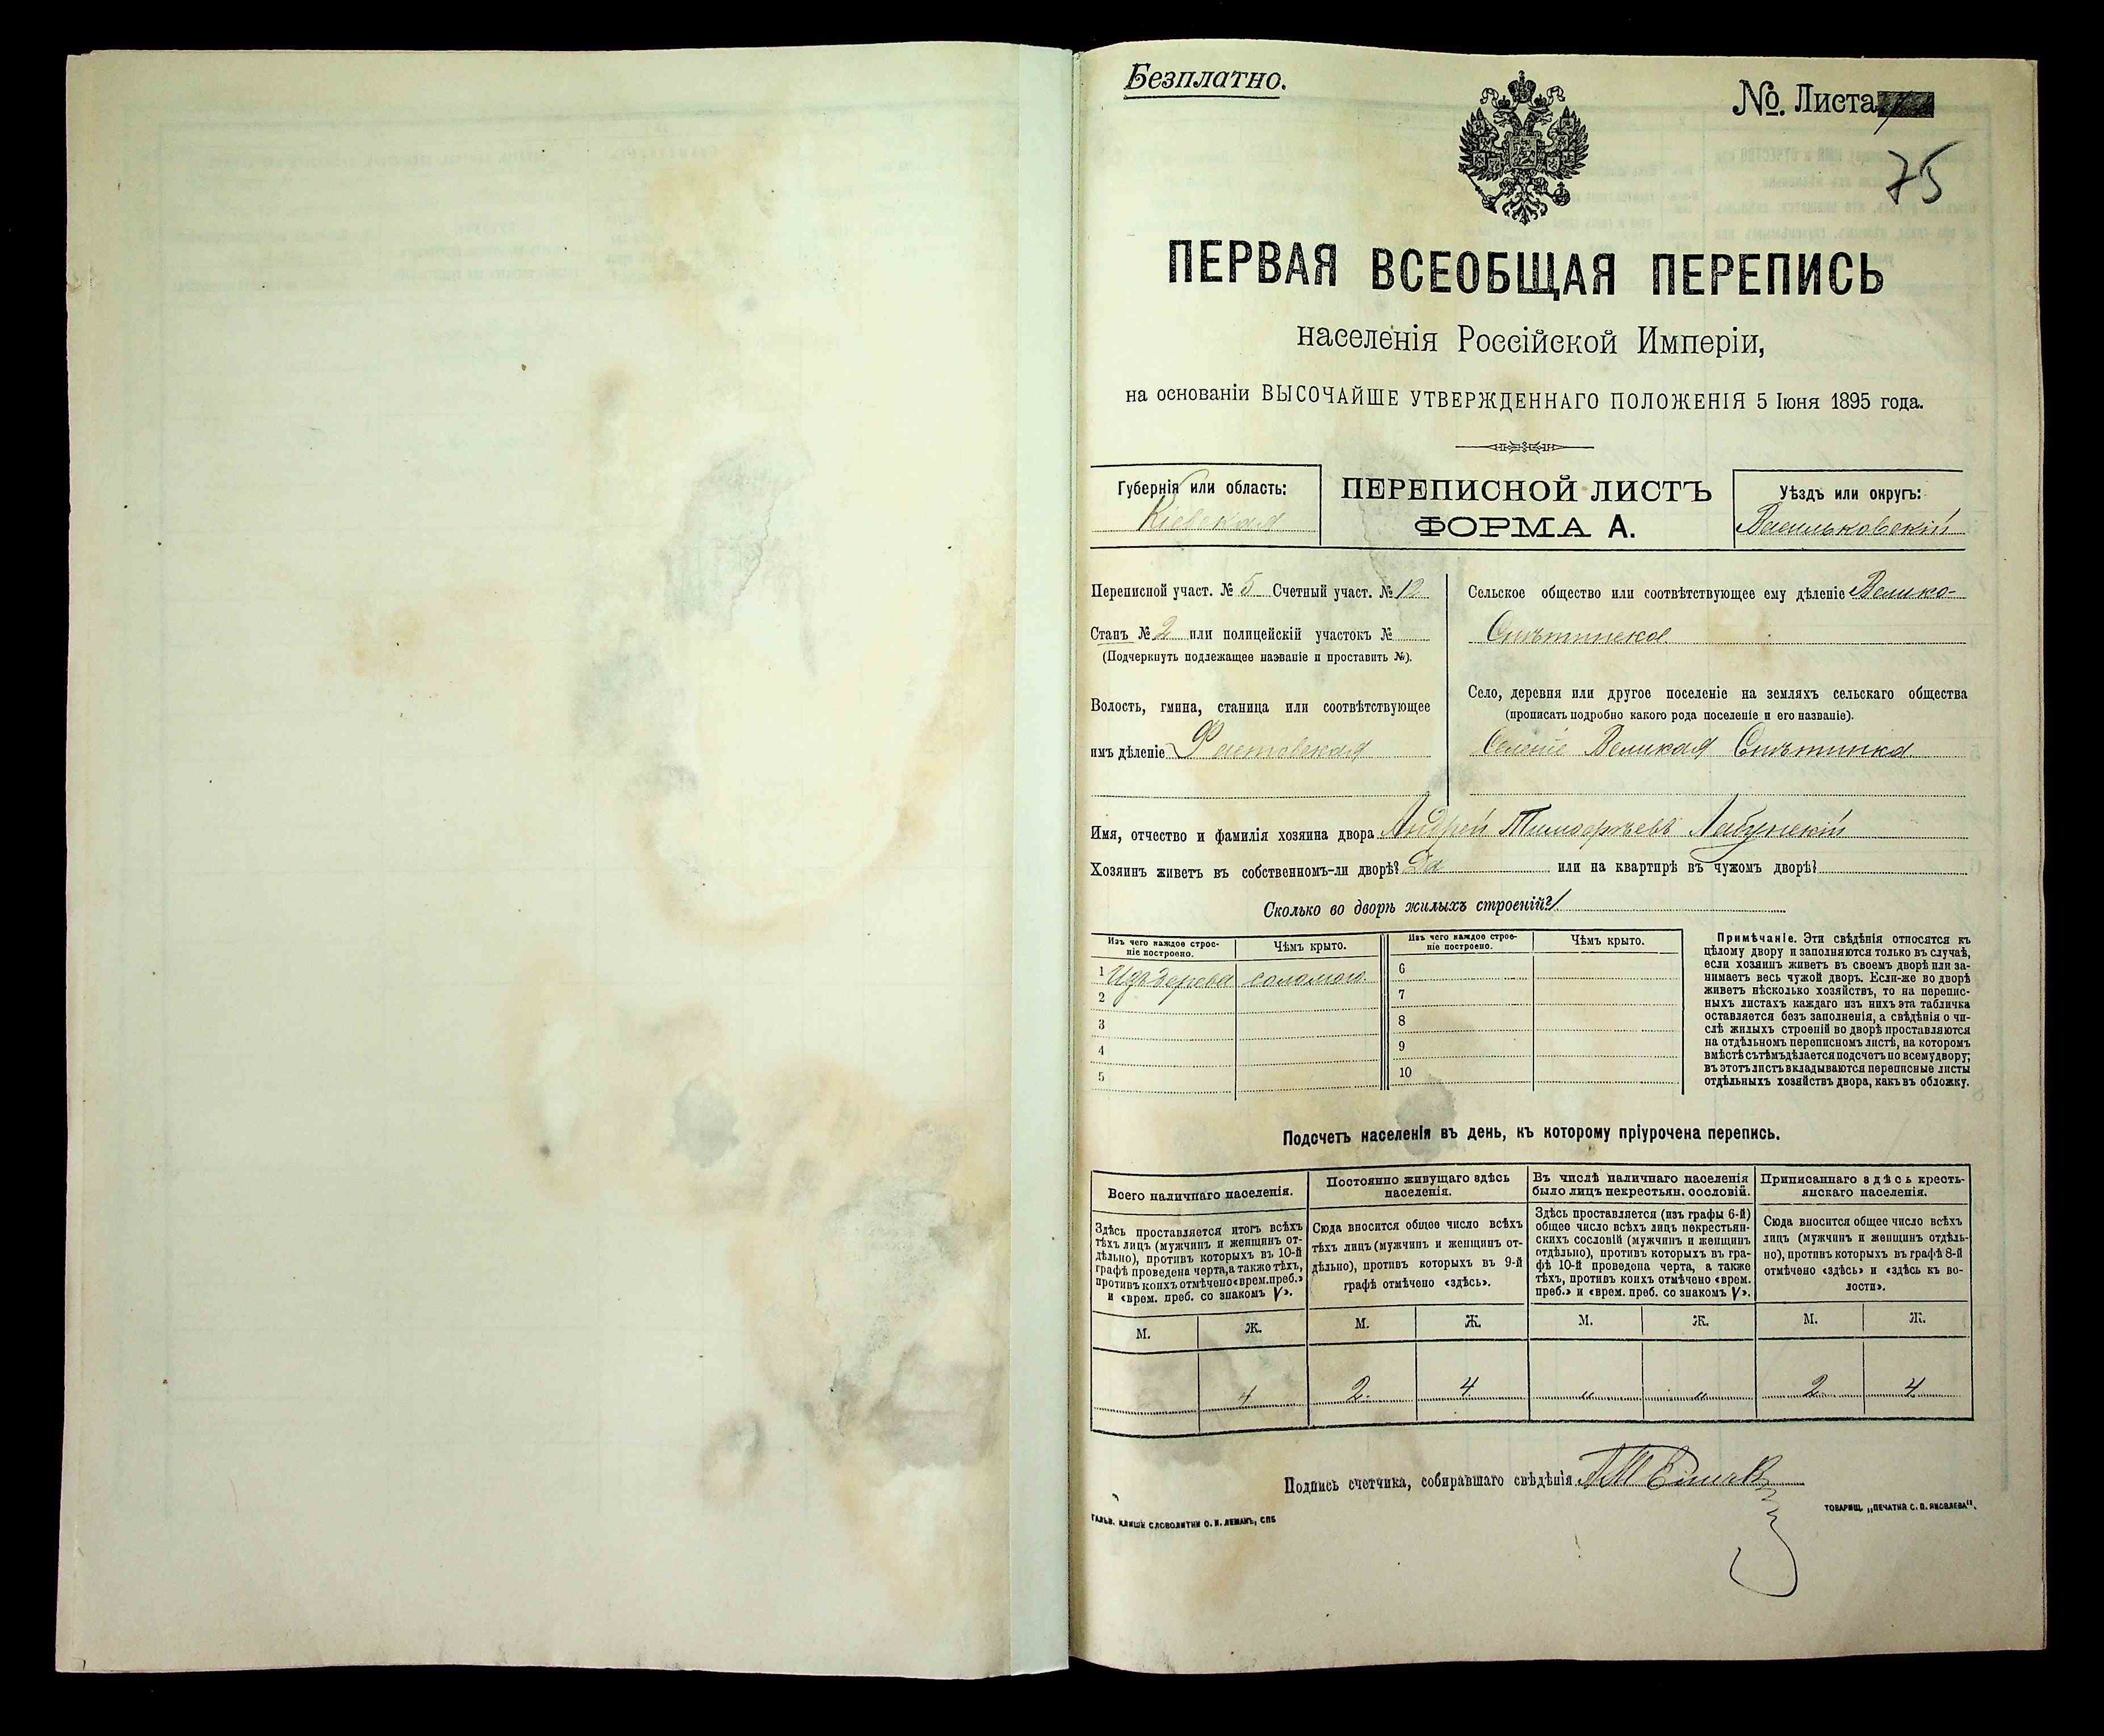 Безплатно.
№. Листа
75
ПЕРВАЯ ВСЕОБЩАЯ ПЕРЕПИСЬ
населенія Россійской Имперіи,
на основаніи ВЫСОЧАЙШЕ УТВЕРЖДЕННАГО ПОЛОЖЕНІЯ 5 Іюня 1895 года.
Губернія или область:
Кіевская
ПЕРЕПИСНОЙ ЛИСТЪ
ФОРМА А.
Уѣздъ или округъ:
Васильковскій
Переписной участ. № 5 Счетный участ. № 12
Станъ № 2 или полицейскій участокъ №
(Подчеркнуть подлежащее названіе и проставить №).
Волость, гмина, станица или соотвѣтствующее
имъ дѣленіе Фастовская
Сельское общество или соотвѣтствующее ему дѣленіе Велико-
Снѣтинское
Село, деревня или другое поселеніе на земляхъ сельскаго общества
(прописать подробно какого рода поселеніе и его названіе).
Селеніе Великая Снѣтинка
Имя, отчество и фамилія хозяина двора Андрей Тимофѣевъ Лабунскій
Хозяинъ живетъ въ собственномъ-ли дворѣ? Да или на квартирѣ въ чужомъ дворѣ?
Сколько во дворѣ жилыхъ строеній? 1
Изъ чего каждое строе-
ніе построено.
Чѣмъ крыто.
Изъ чего каждое строе-
ніе построено.
Чѣмъ крыто.
1 Изъ дерева соломою
2
3
4
5
6
7
8
9
10
Примѣчаніе. Эти свѣдѣнія относятся къ
цѣлому двору и заполняются только въ случаѣ,
если хозяинъ живетъ въ своемъ дворѣ или за-
нимаетъ весь чужой дворъ. Если-же во дворѣ
живетъ нѣсколько хозяйствъ, то на перепис-
ныхъ листахъ каждаго изъ нихъ эта табличка
оставляется безъ заполненія, а свѣдѣнія о чи-
слѣ жилыхъ строеній во дворѣ проставляются
на отдѣльномъ переписномъ листѣ, на которомъ
вмѣстѣ съ тѣмъ дѣлается подсчетъ по всему двору;
въ этотъ листъ вкладываются переписные листы
отдѣльныхъ хозяйствъ двора, какъ въ обложку.
Подсчетъ населенія въ день, къ которому пріурочена перепись.
Всего наличнаго населенія.
Здѣсь проставляется итогъ всѣхъ
тѣхъ лицъ (мужчинъ и женщинъ от-
дѣльно), противъ которыхъ въ 10-й
графѣ проведена черта, а также тѣхъ,
противъ коихъ отмѣчено «врем. преб.»
и «врем. преб. со знакомъ V».
Постоянно живущаго здѣсь
населенія.
Сюда вносится общее число всѣхъ
тѣхъ лицъ (мужчинъ и женщинъ от-
дѣльно), противъ которыхъ въ 9-й
графѣ отмѣчено «здѣсь».
Въ числѣ наличнаго населенія
было лицъ некрестьян. сословій.
Здѣсь проставляется (изъ графы 6-й)
общее число всѣхъ лицъ некрестьян-
скихъ сословій (мужчинъ и женщинъ
отдѣльно), противъ которыхъ въ гра-
фѣ 10-й проведена черта, а также
тѣхъ, противъ коихъ отмѣчено «врем.
преб.» и «врем. преб. со знакомъ V».
Приписаннаго здѣсь кресть-
янскаго населенія.
Сюда вносится общее число всѣхъ
лицъ (мужчинъ и женщинъ отдѣль-
но), противъ которыхъ въ графѣ 8-й
отмѣчено «здѣсь» и «здѣсь къ во-
лости».
М. Ж. М. Ж. М. Ж. М. Ж.
4 2 4 " " 2 4
Подпись счетчика, собиравшаго свѣдѣнія
ГАЛЬВ. КЛИШЕ СЛОВОЛИТНИ О. И. ЛЕМАНЪ, СПБ
ТОВАРИЩ. „ПЕЧАТНЯ С. П. ЯКОВЛЕВА".